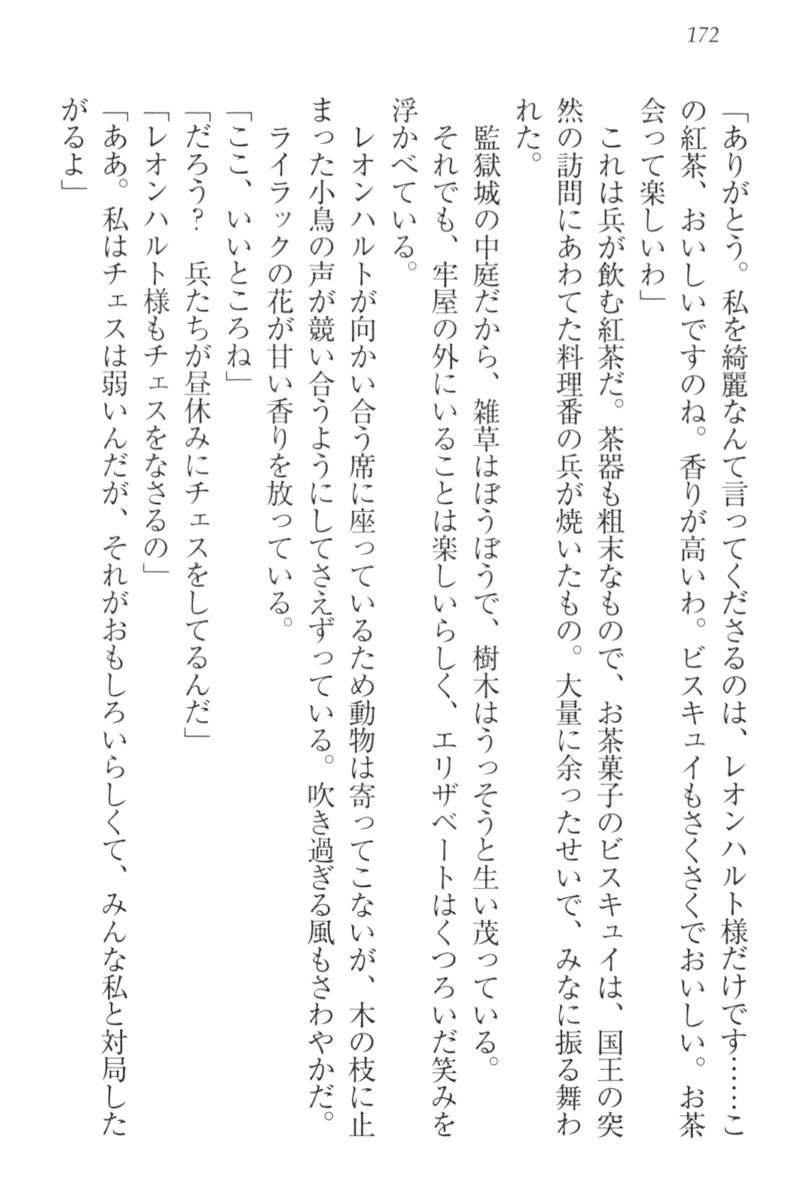 172
「ありがとう。私を綺麗なんて言ってくださるのは、レオンハルト様だけです……こ
の紅茶、おいしいですのね。香りが高いわ。ビスキュイもさくさくでおいしい。お茶
会って楽しいわ」
　これは兵が飲む紅茶だ。茶器も粗末なもので、お茶菓子のビスキュイは、国王の突
然の訪問にあわてた料理番の兵が焼いたもの。大量に余ったせいで、みなに振る舞わ
れた。
　監獄城の中庭だから、雑草はぼうぼうで、樹木はうっそうと生い茂っている。
　それでも、牢屋の外にいることは楽しいらしく、エリザベートはくつろいだ笑みを
浮かべている。
　レオンハルトが向かい合う席に座っているため動物は寄ってこないが、木の枝に止
まった小鳥の声が競い合うようにしてさえずっている。吹き過ぎる風もさわやかだ。
　ライラックの花が甘い香りを放っている。
「ここ、いいところね」
「だろう？　兵たちが昼休みにチェスをしてるんだ」
「レオンハルト様もチェスをなさるの」
「ああ。私はチェスは弱いんだが、それがおもしろいらしくて、みんな私と対局した
がるよ」